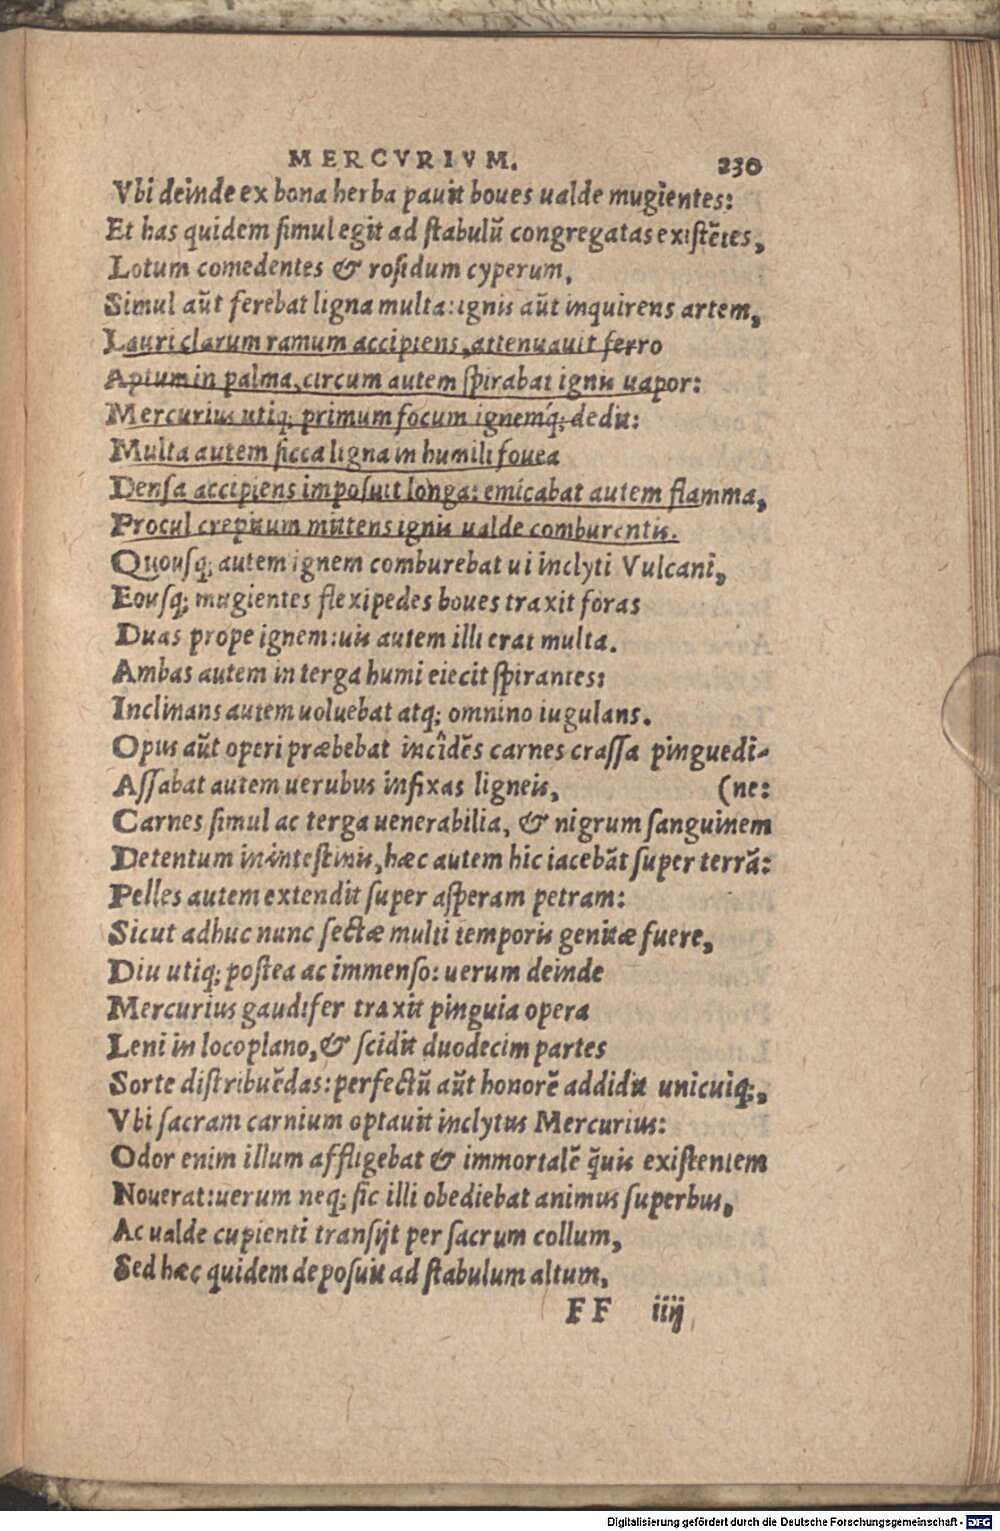 MERCVRIVM. 230
Vbi deinde ex bona herba pauit boues ualde mugientes:
Et has quidem simul egit ad stabulũ congregatas existẽtes,
Lotum comedentes & rosidum cyperum,
Simul aũt ferebat ligna multa: ignis aũt inquirens artem,
Lauri clarum ramum accipiens, attenuauit ferro
Aptum in palma, circum autem spirabat ignis uapor:
Mercurius utiq; primum focum ignemq́; dedit:
Multa autem sicca ligna in humili fouea
Densa accipiens imposuit longa: emicabat autem flamma,
Procul crepitum mittens ignis ualde comburentis.
Quousq; autem ignem comburebat ui inclyti Vulcani,
Eousq; mugientes flexipedes boues traxit foras
Duas prope ignem: uis autem illi erat multa.
Ambas autem in terga humi eiecit spirantes:
Inclinans autem uoluebat atq; omnino iugulans.
Opus aũt operi præbebat incidẽs carnes crassa pinguedi-
Assabat autem uerubus infixas ligneis, (ne:
Carnes simul ac terga uenerabilia, & nigrum sanguinem
Detentum in intestinis, hæc autem hic iacebãt super terrã:
Pelles autem extendit super asperam petram:
Sicut adhuc nunc sectæ multi temporis genitæ fuere,
Diu utiq; postea ac immenso: uerum deinde
Mercurius gaudifer traxit pinguia opera
Leni in loco plano, & scidit duodecim partes
Sorte distribuẽdas: perfectũ aũt honorẽ addidit unicuiq;,
Vbi sacram carnium optauit inclytus Mercurius:
Odor enim illum affligebat & immortalẽ q̃uis existentem
Nouerat: uerum neq; sic illi obediebat animus superbus,
Ac ualde cupienti transijt per sacrum collum,
Sed hæc quidem deposuit ad stabulum altum,
FF iiij
Digitalisierung gefördert durch die Deutsche Forschungsgemeinschaft - DFG